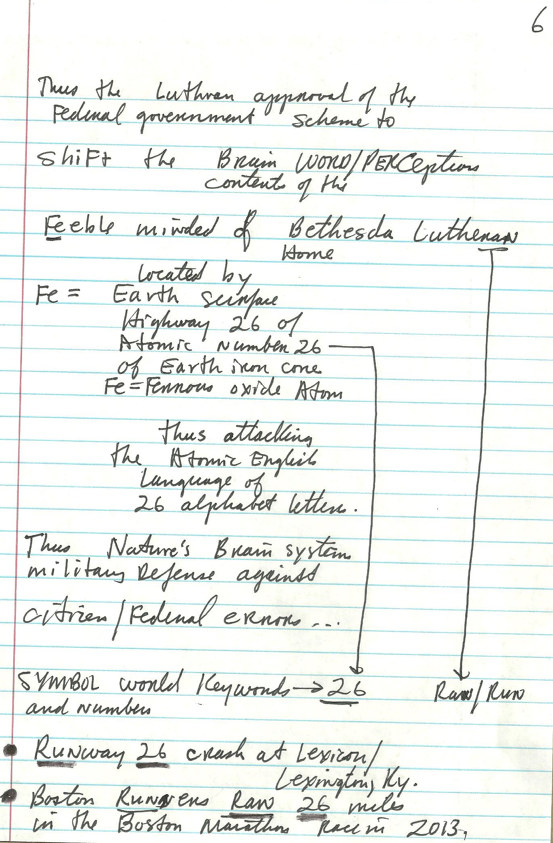 6
Thus the Luthran approval of the
Federal government scheme to
shift the Brain WORD/PERCeption
contents of the
Feeble minded of Bethesda Lutheran
Home
located by
Fe = Earth surface
Highway 26 of
Atomic number 26
of Earth iron core
Fe = Ferrous oxide Atom
thus attacking
the Atomic English
Language of
26 alphabet letters.
Thus Nature's Brain system
military Defense against
citizen/Federal errors ...
SYMBOL world Keywords → 26 Ran/Run
and numbers
• Runway 26 crash at Lexicon/
Lexington, Ky.
• Boston Runners Ran 26 miles
in the Boston Marathon Race in 2013,